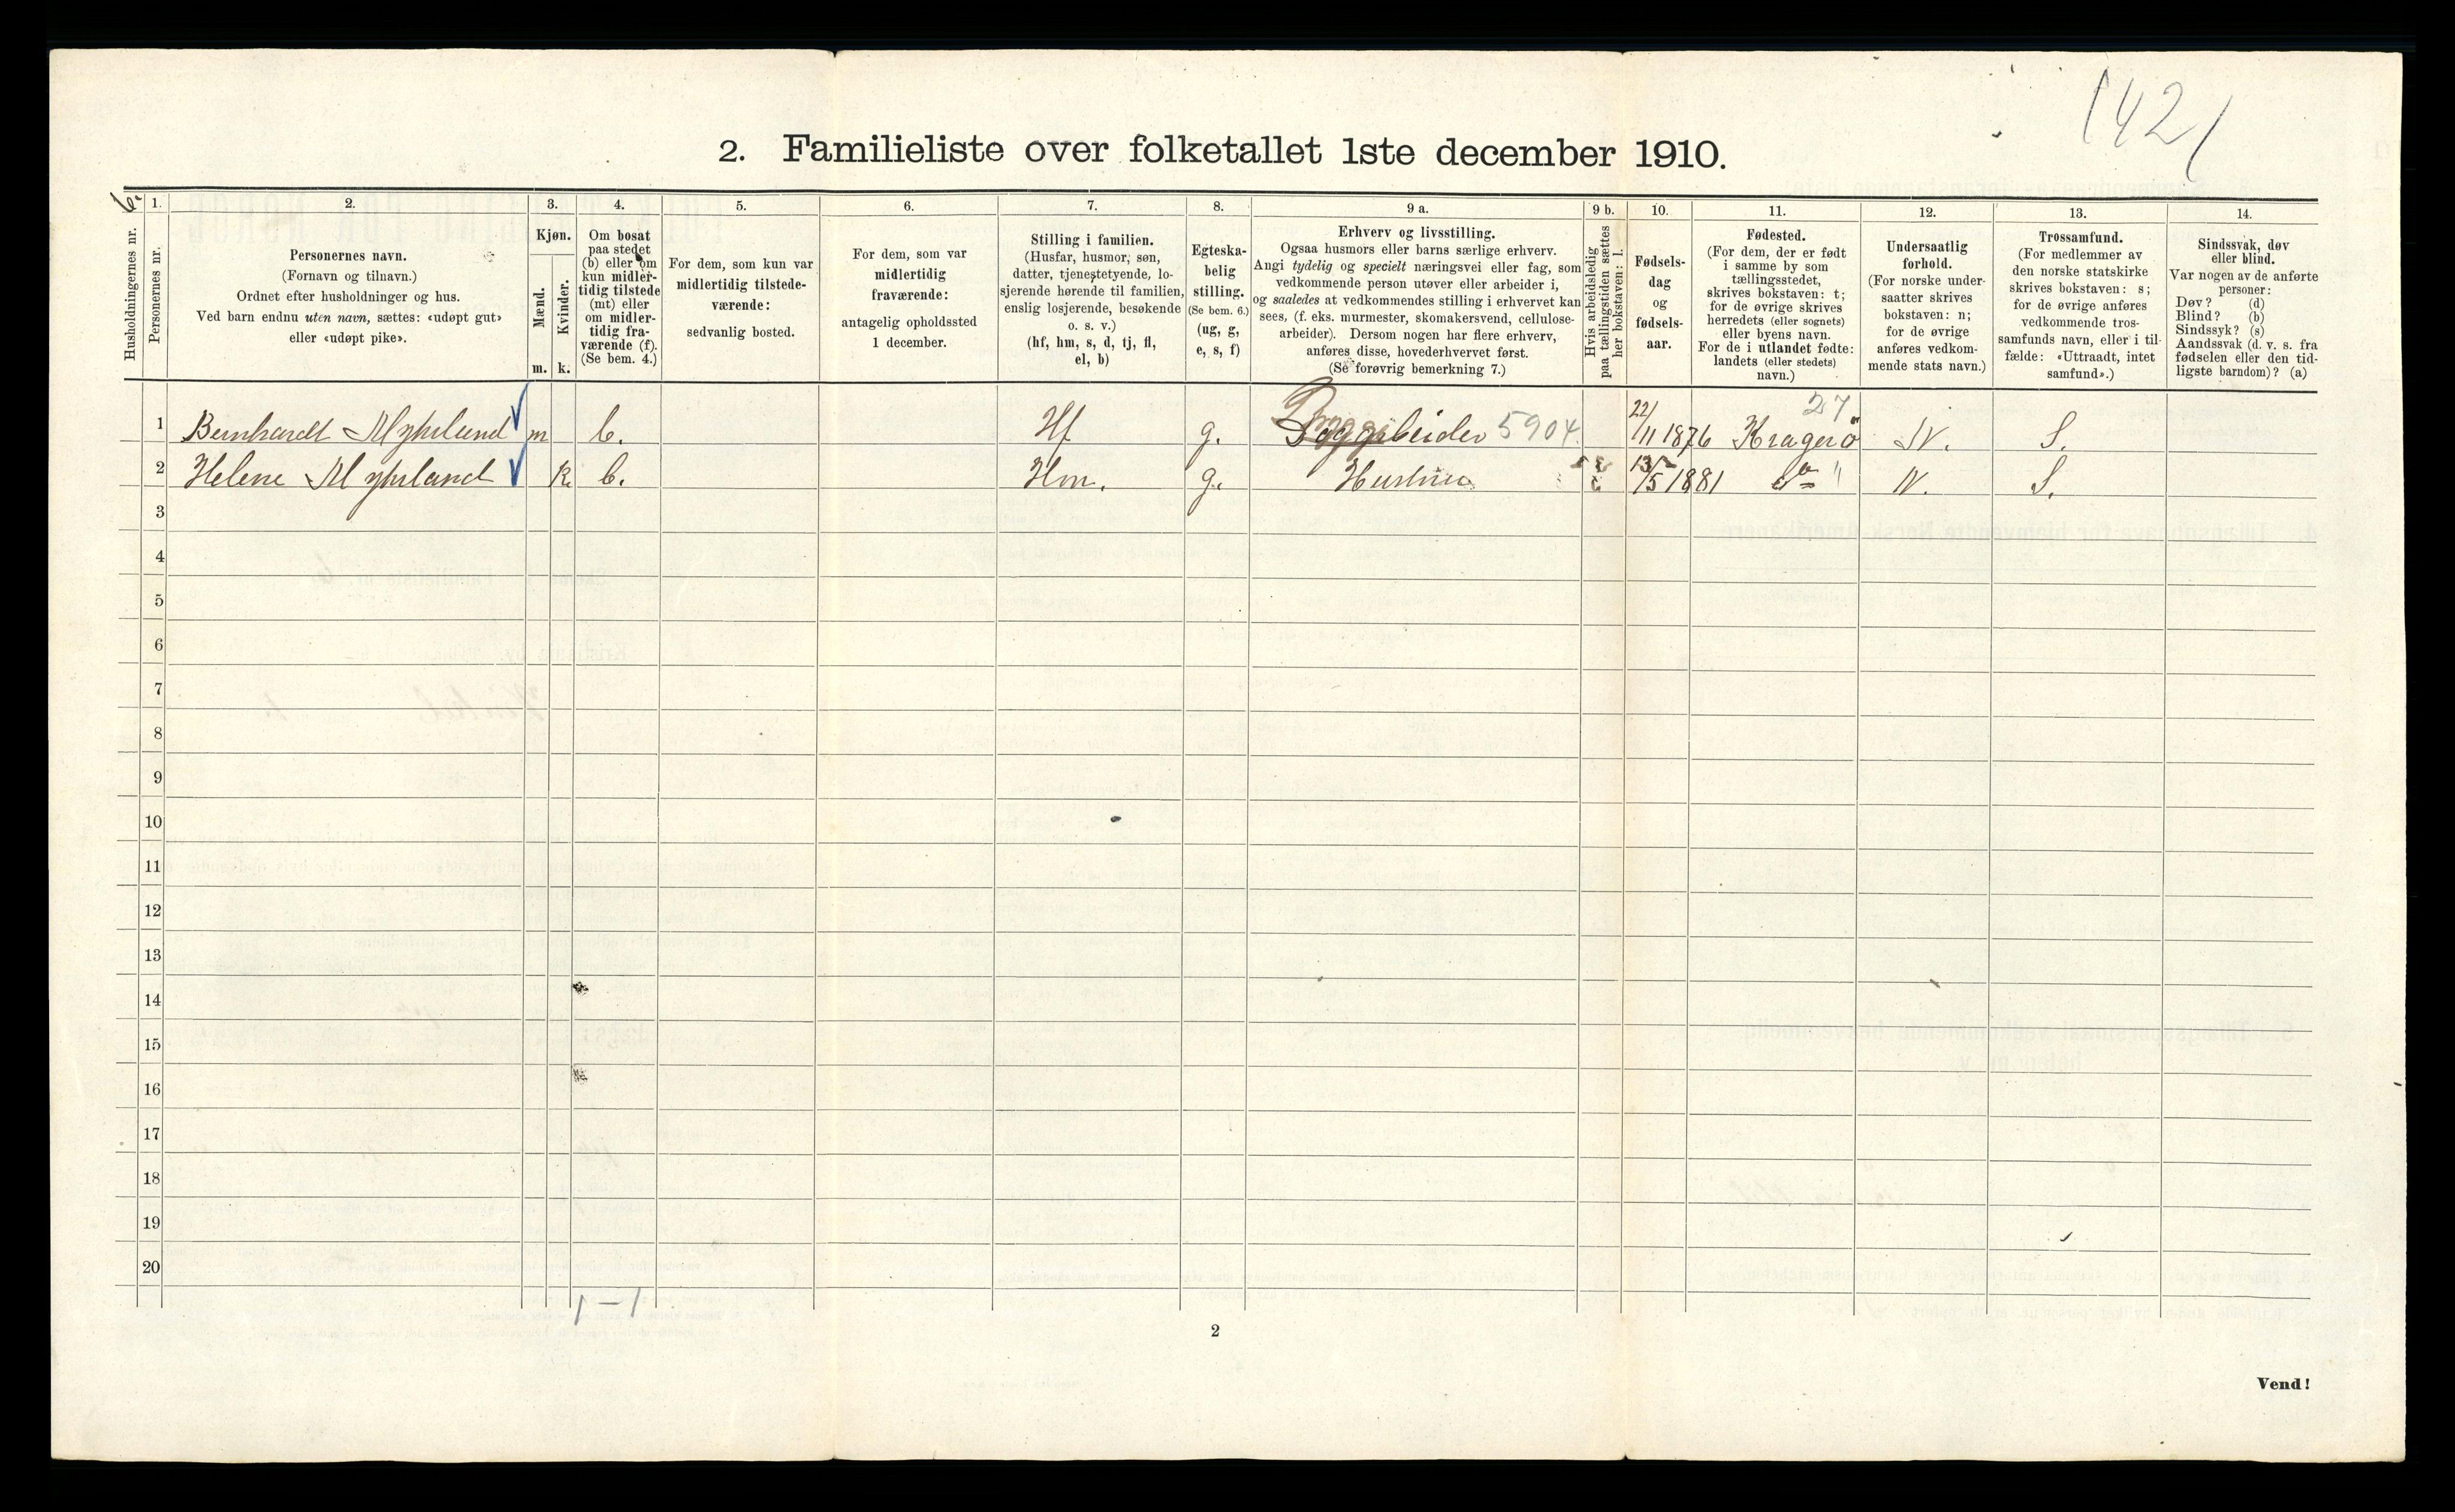 142
2. Familieliste over folketallet 1ste december 1910.
6.
1. 2. 3. 4. 5. 6. 7. 8. 9 a. 9 b. 10. 11. 12. 13. 14.
Husholdningernes nr.
Personernes nr.
Personernes navn.
(Fornavn og tilnavn.)
Ordnet efter husholdninger og hus.
Ved barn endnu uten navn, sættes: «udøpt gut»
eller «udøpt pike».
Kjøn.
Mænd.
Kvinder.
m. k.
Om bosat
paa stedet
(b) eller om
kun midler-
tidig tilstede
(mt) eller
om midler-
tidig fra-
værende (f).
(Se bem. 4.)
For dem, som kun var
midlertidig tilstede-
værende:
sedvanlig bosted.
For dem, som var
midlertidig
fraværende:
antagelig opholdssted
1 december.
Stilling i familien.
(Husfar, husmor, søn,
datter, tjenestetyende, lo-
sjerende hørende til familien,
enslig losjerende, besøkende
o. s. v.)
(hf, hm, s, d, tj, fl,
el, b)
Egteska-
belig
stilling.
(Se bem. 6.)
(ug, g,
e, s, f)
Erhverv og livsstilling.
Ogsaa husmors eller barns særlige erhverv.
Angi tydelig og specielt næringsvei eller fag, som
vedkommende person utøver eller arbeider i,
og saaledes at vedkommendes stilling i erhvervet kan
sees, (f. eks. murmester, skomakersvend, cellulose-
arbeider). Dersom nogen har flere erhverv,
anføres disse, hovederhvervet først.
(Se forøvrig bemerkning 7.)
Hvis arbeidsledig
paa tællingstiden sættes
her bokstaven: l.
Fødsels-
dag
og
fødsels-
aar.
Fødested.
(For dem, der er født
i samme by som
tællingsstedet,
skrives bokstaven: t;
for de øvrige skrives
herredets (eller sognets)
eller byens navn.
For de i utlandet fødte:
landets (eller stedets)
navn.)
Undersaatlig
forhold.
(For norske under-
saatter skrives
bokstaven: n;
for de øvrige
anføres vedkom-
mende stats navn.)
Trossamfund.
(For medlemmer av
den norske statskirke
skrives bokstaven: s;
for de øvrige anføres
vedkommende tros-
samfunds navn, eller i til-
fælde: «Uttraadt, intet
samfund».)
Sindssvak, døv
eller blind.
Var nogen av de anførte
personer:
Døv? (d)
Blind? (b)
Sindssyk? (s)
Aandssvak (d. v. s. fra
fødselen eller den tid-
ligste barndom)? (a)
1 Bernhardt Myhrlund m b. Hf g. 5904 22/11 1876 Kragerö 27 N. S.
2 Helene Myhrland k b. Hm. g. Hustru 13/5 1881 Do " N. S.
3
4
5
6
7
8
9
10
11
12
13
14
15
16
17
18
19
20
1 – 1
2
Vend!